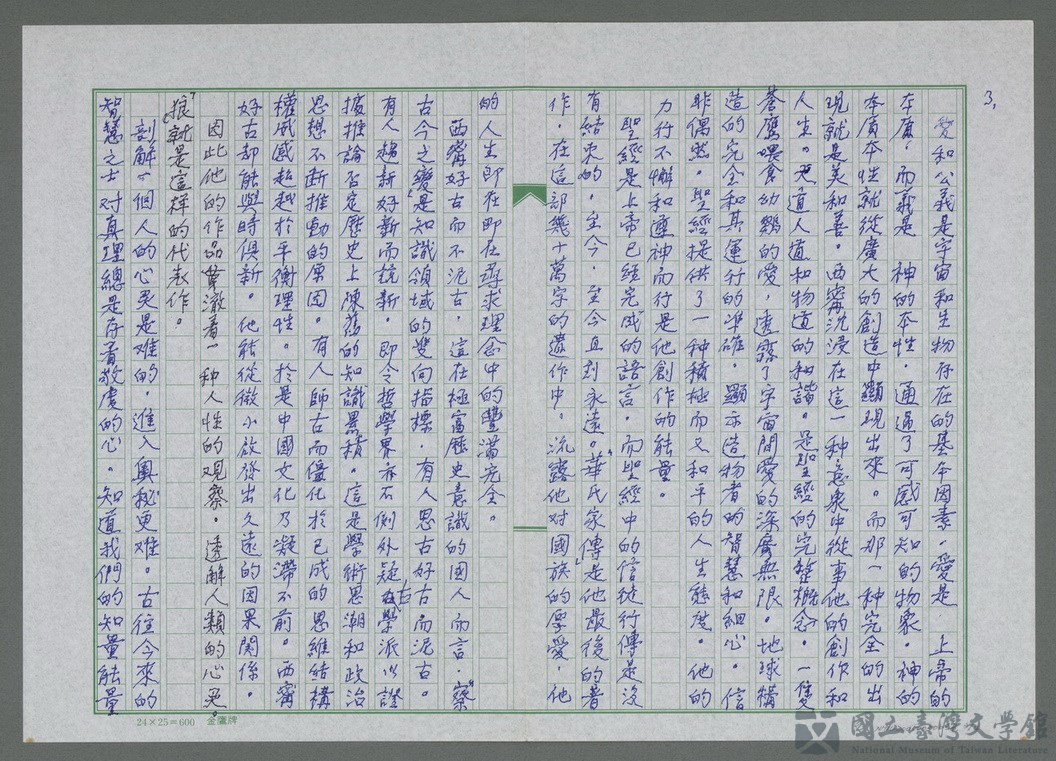 3,
愛和公義是宇宙和生物存在的基本因素。愛是 上帝的
本質,而義是 神的本性。通過了可感可知的物象。神的
本質本性就從廣大的創造中顯現出來。而那一种完全的出
現就是美和善。西甯沈浸在這一种意象中從事他的創作和
人生。天道人道和物道的和諧。是聖經的完整概念。一隻
蒼鷹喂食幼鶵的愛,透露了宇宙間愛的深廣無限。地球構
造的完全和其運行的準確。顯示造物者的智慧和細心。信
非偶然。聖經提供了一种積極而又和平的人生態度。他的
力行不懈和遵神而行是他創作的能量。
聖經是上帝已經完成的語言。而聖經中的信徒行傳是沒
有結束的。至今,至今且到永遠。“華氏家傳”是他最後的著
作。在這部幾十萬字的遺作中。流露他对國族的厚愛,他
的人生即在即在尋求理念中的豐滿完全。
西甯好古而不泥古,這在極富歷史意識的國人而言,“察
古今之變”是知識領域的雙向指標,有人思古好古而泥古。
有人趨新好新而抗新。即令哲學界亦不例外疑古學派以證
據推論否定歷史上陳舊的知識累積。這是學術思潮和政治
思想不断推動的原因。有人師古而僵化於已成的思維結構
權威感超越於平衡理性。於是中國文化乃凝滯不前。西甯
好古却能與時俱新。他能從微小啟發出久遠的因果關係。
因此他的作品貫澈着一种人性的观察。透解人類的心灵。
“狼”就是這样的代表作。
剖解一個人的心灵是难的,進入奧秘更难。古往今來的
智慧之士 对真理總是存着敬虔的心。知道我們的知量能量
24×25=600 金鷹牌
國立臺灣文學館
National Museum of Taiwan Literature